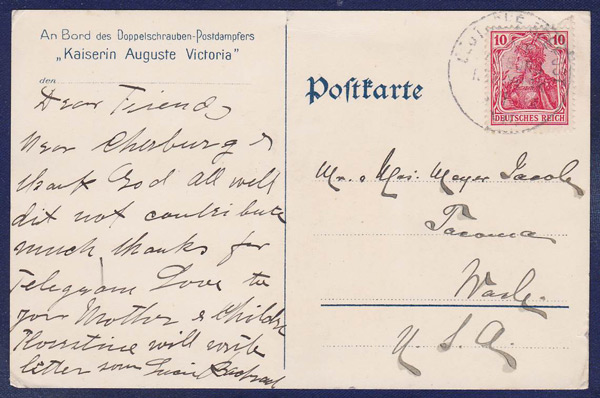 An Bord des Doppelschrauben-Postdampfers
„Kaiserin Auguste Victoria"
den
Dear Friends
Near Cherburg &
thank God all well
dit not contribute
much, thanks for
Telegram Love to
your Mother & Childr
will write
letter soon
Postkarte
10 10
DEUTSCHES REICH
Mr. & Mrs. Meyer Jacob
Tacoma
Wash.
U.S.A.